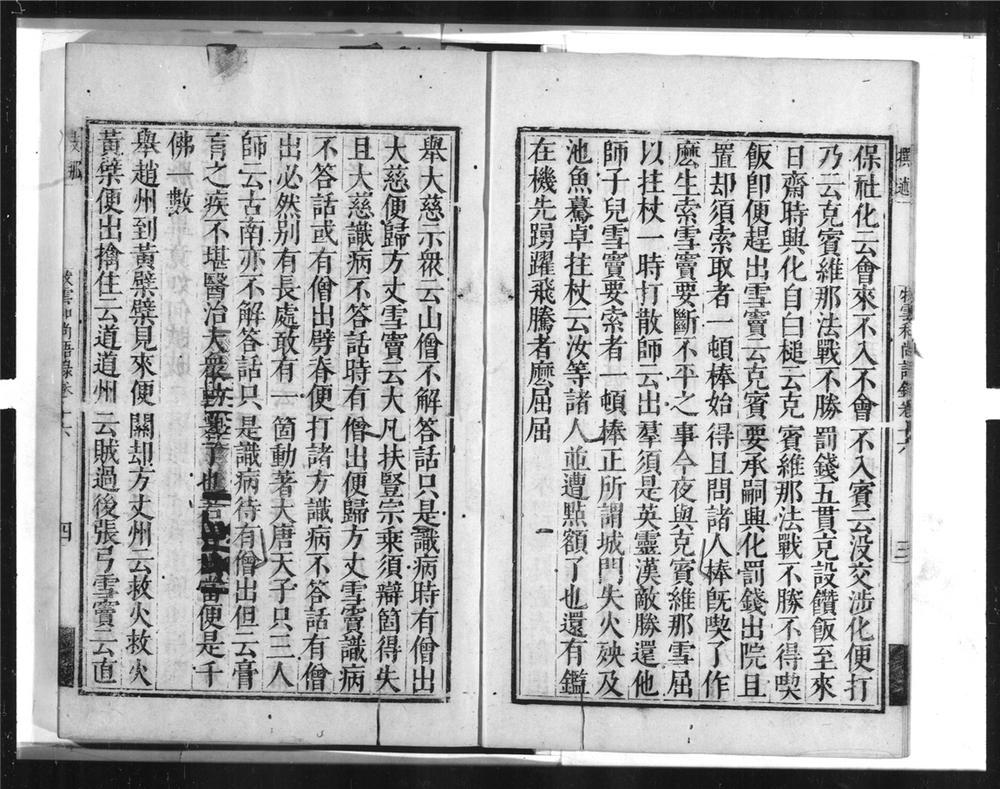 保社化云會來不入不會不入賓云没交涉化便打
乃云克賓維那法戰不勝罰錢五貫充設饡飯至來
日齋時興化自白槌云克賓維那法戰不勝不得喫
飯卽便趕出雪竇云克賓要承嗣興化罰錢出院且
置却須索取者一頓棒始得且問諸人棒旣喫了作
麼生索雪竇要斷不平之事今夜與克賓維那雪屈
以拄杖一時打散師云出羣須是英靈漢敵勝還他
師子兒雪竇要索者一頓棒正所謂城門失火殃及
池魚驀卓拄杖云汝等諸人並遭點額了也還有鑑
在機先踴躍飛騰者麼屈屈
三
舉大慈示衆云山僧不解答話只是識病時有僧出
大慈便歸方丈雪竇云大凡扶豎宗乘須辯箇得失
且大慈識病不答話時有僧出便歸方丈雪竇識病
不答話或有僧出劈脊便打諸方識病不答話有僧
出必然別有長處敢有一箇動著大唐天子只三人
師云古南亦不解答話只是識病待有僧出但云膏
肓之疾不堪醫治大衆
便是千
佛一數
舉趙州到黃檗檗見來便關却方丈州云救火救火
黃檗便出擒住云道道州云賊過後張弓雪竇云直
四